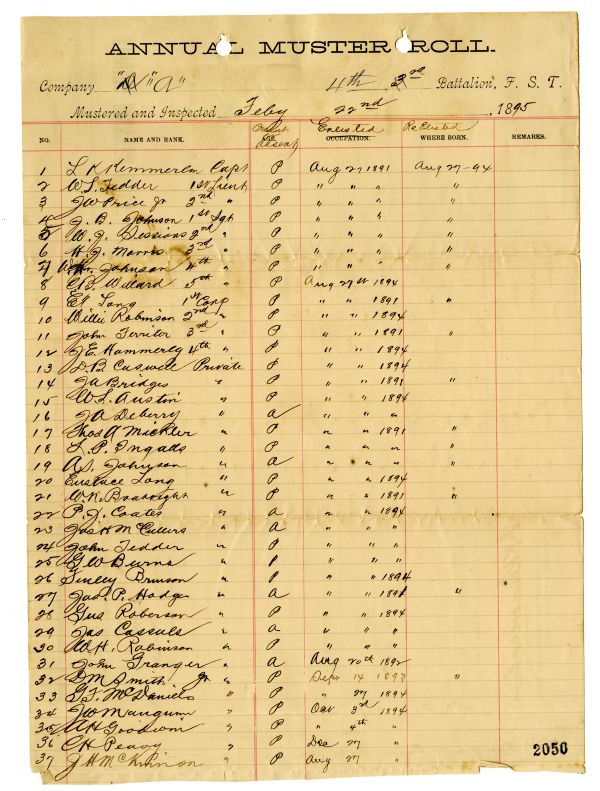 ANNUAL MUSTER ROLL.
Company "A" 4th 3rd Battalion, F. S. T.
Mustered and Inspected Feby 22nd, 1895
Present or absent Enlisted ReElisted
NO. NAME AND RANK. OCCUPATION. WHERE BORN. REMARKS.
1 L K Kemmerlin Capt P Aug 27 1891 Aug 27-94
2 W. L. Tedder 1st Lieut P " " " "
3 JW Price Jr 2nd " P " " " "
4 J. B. Johnson 1st Sgt P " " " "
5 W. J. Sessions 2nd " P " " " "
6 H. J. Morris 3rd " P " " " "
7 Wm. Johnson 4th " P " " " "
8 C. B. Willard 5th " P Aug 27th 1894
9 E. Long 1st Corp P " " 1891 "
10 Willie Robinson 2nd " P " " 1894
11 John Territor 3rd " P " " 1891 "
12 J. E. Hammerly 4th " P " " 1894
13 D. B. Caswell Private P " " 1894
14 J A Bridges " P " " 1891 "
15 W. L. Austin " P " " 1894
16 J A Deberry " A " " "
17 Thos A Mickler " P " " 1891 "
18 L. P. Ingalls " P " " " "
19 A. S. Johnson " A " " " "
20 Eustace Long " P " " 1894
21 W. R. Boatright " P " " 1891 "
22 P. J. Coates " A " " 1894
23 Jas H McCullers " A " " "
24 John Tedder " P " " "
25 G W Burns " P " " "
26 Finley Brinson " P " " 1894
27 Jas. P. Hodge " A " " 1891 "
28 Gus Roberson " P " " 1894
29 Jas Cassels " A " " "
30 W. H. Robinson " P " " "
31 John Granger " A Aug 20th 1892
32 D M Smith Jr " P Sepr 14 1893 "
33 G. F. McDaniels " P " 27 1894
34 JW Mangum " P Oct 3rd 1894
35 A H Goodwin " P " 4th "
36 C H Peavy " P Dec 27 "
37 J H McKinnon " P Aug 27 "
2050